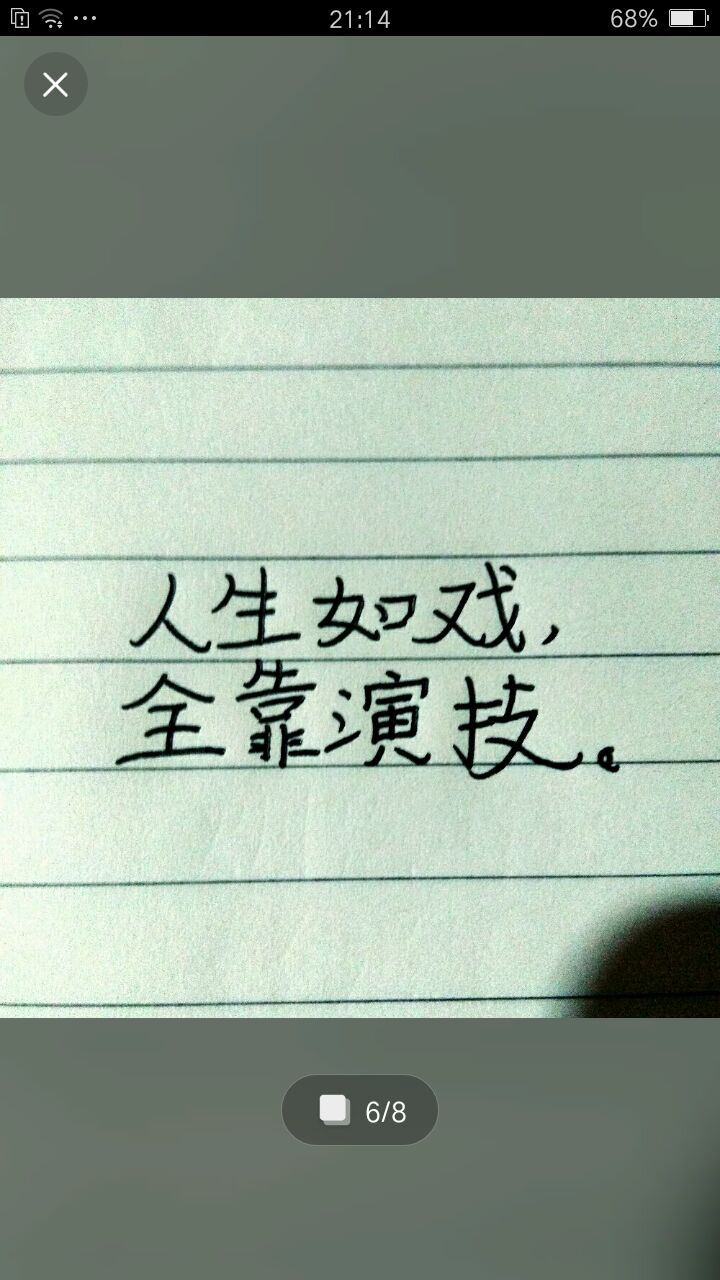 21:14
68%
人生如戏，
全靠演技。
6/8